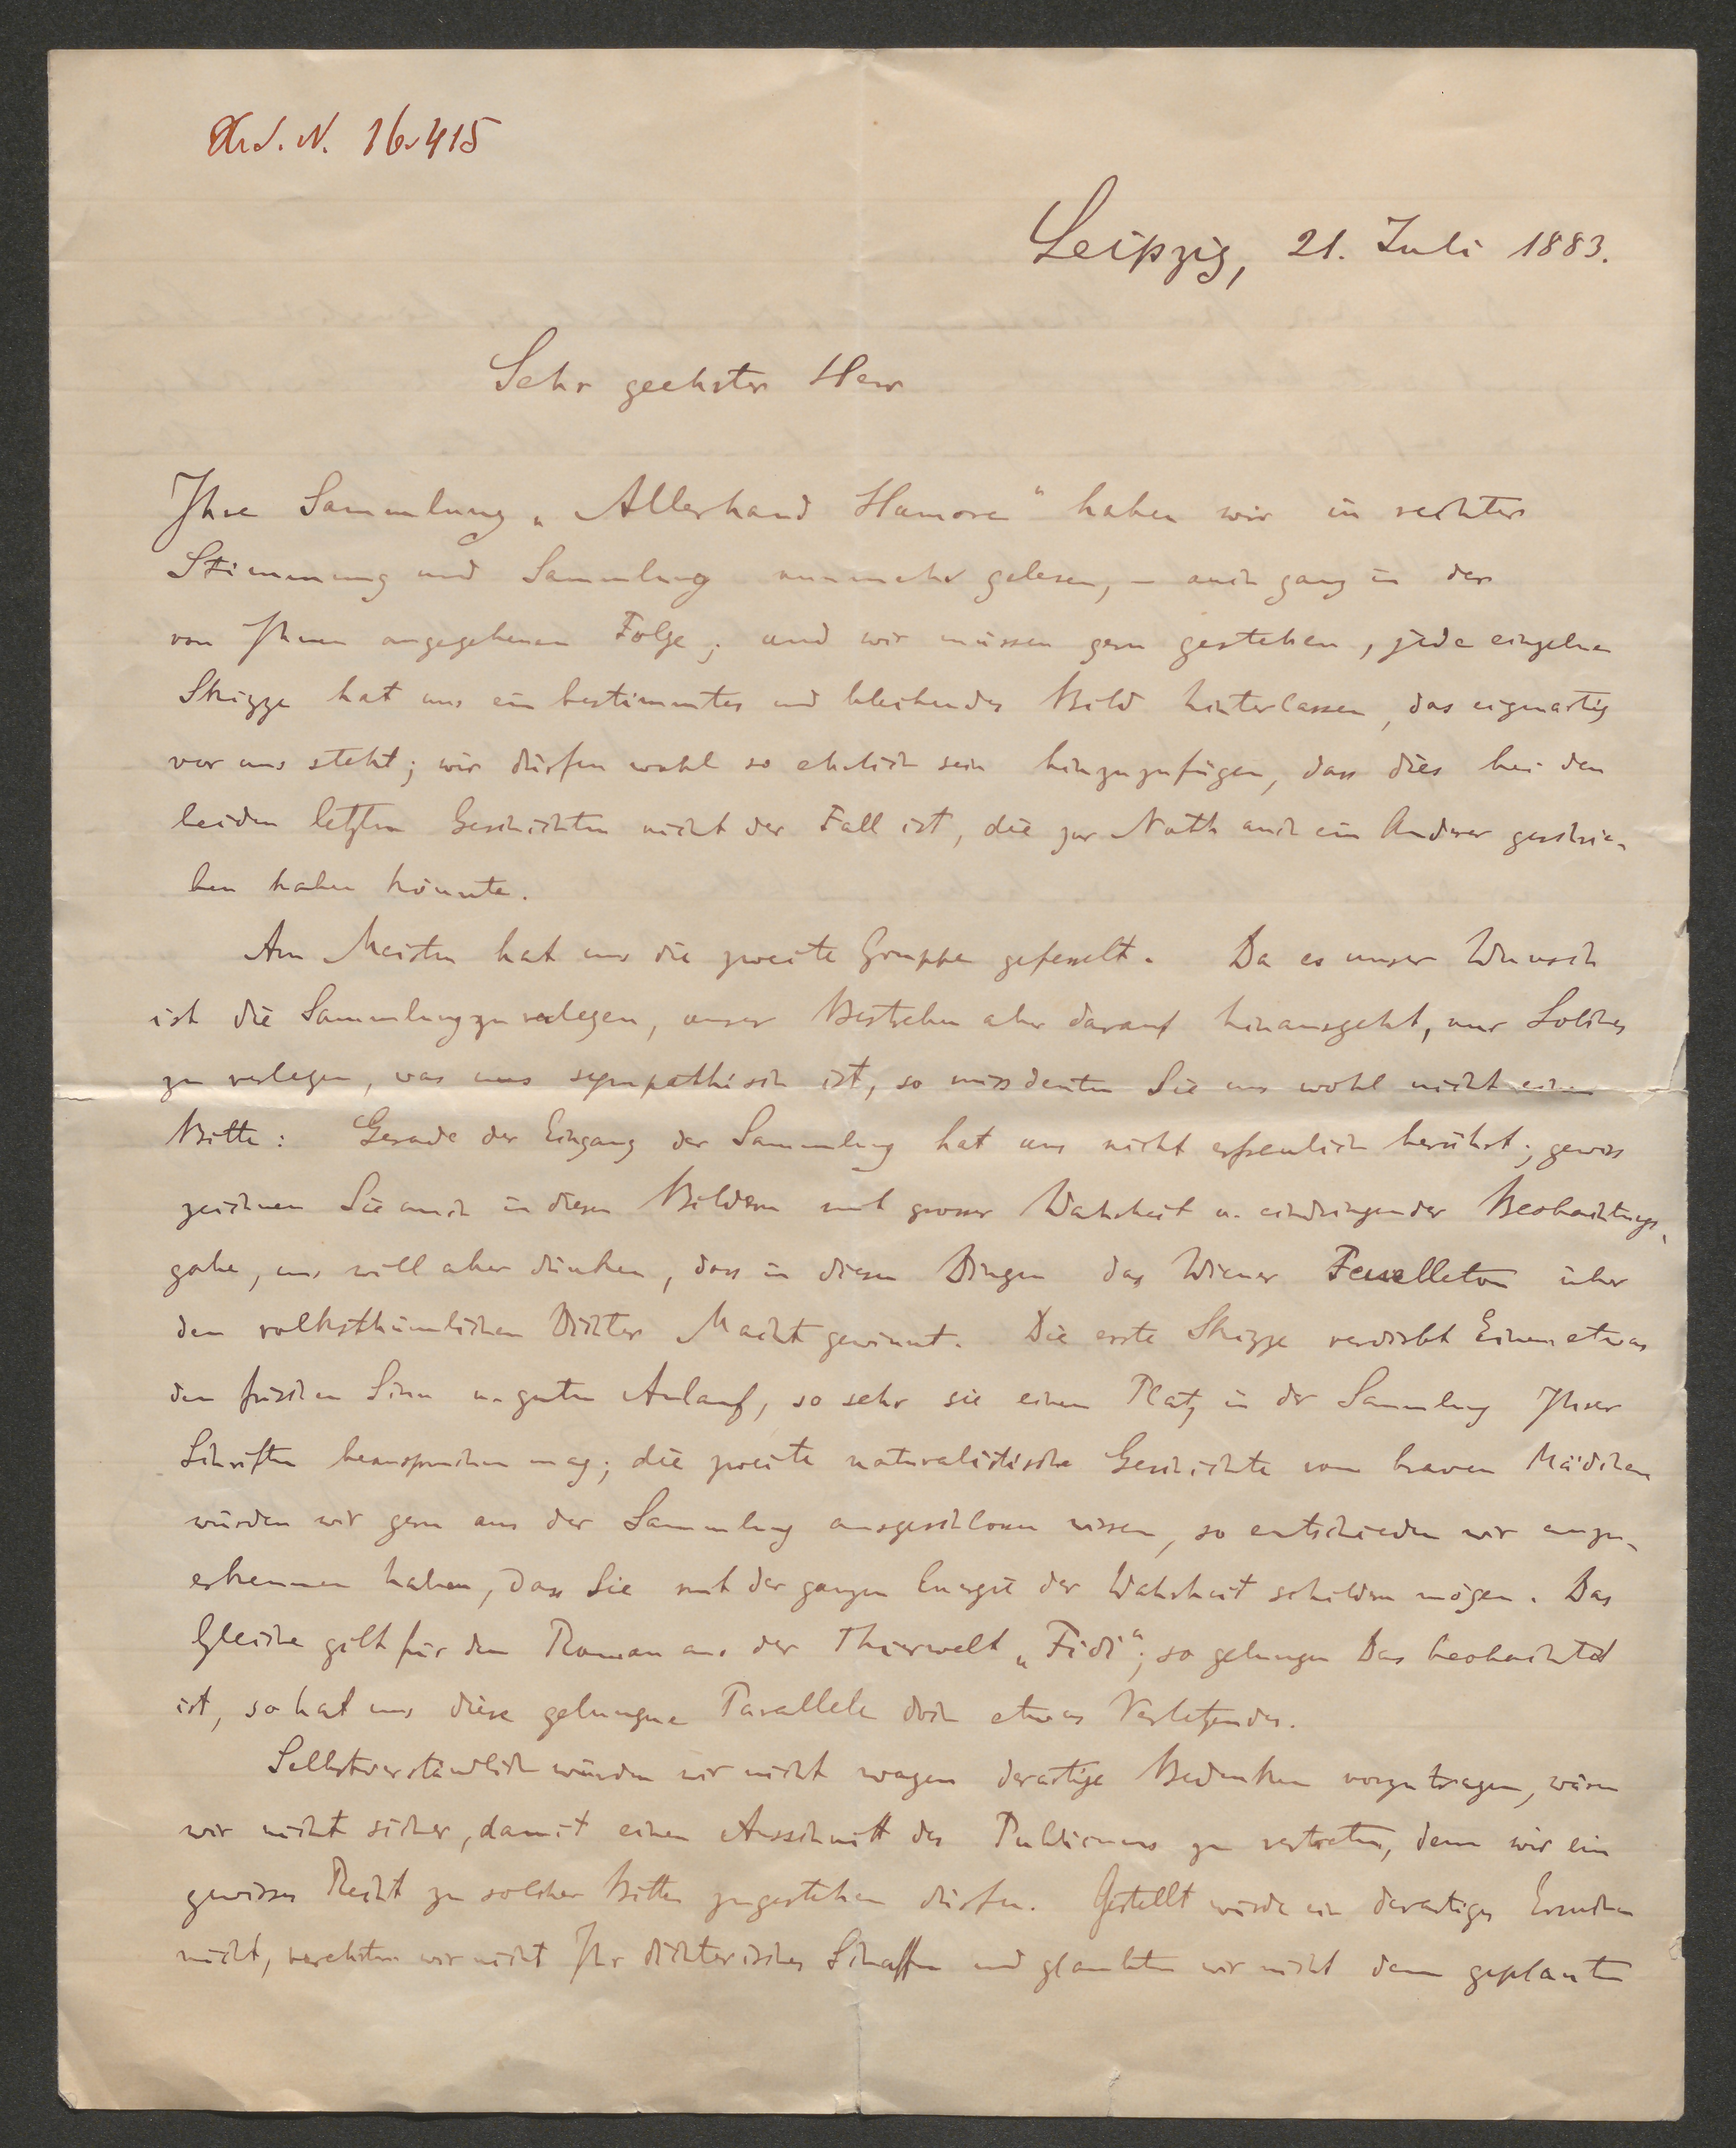 I. N. 16.415
Leipzig, 21. Juli 1883.
Sehr geehrter Herr
Ihre Sammlung „Allerhand Humore“ haben wir in rechter
Stimmung und Sammlung nunmehr gelesen, – auch ganz in der
von Ihnen angegebenen Folge; und wir müssen gern gestehen, jede einzelne
Skizze hat uns ein bestimmtes und bleibendes Bild hinterlassen, das eigenartig
vor uns steht; wir dürfen wohl so ehrlich sein hinzuzufügen, dass dies bei den
beiden letzten Geschichten nicht der Fall ist, die zur Noth auch ein Anderer geschrie-
ben haben könnte.
Am Meisten hat uns die zweite Gruppe gefesselt. Da es unser Wunsch
ist die Sammlung zu verlegen, unser Bestreben aber darauf hinausgeht, nur Solches
zu verlegen, was uns sympathisch ist, so missdeuten Sie uns wohl nicht eine
Bitte: Gerade der Eingang der Sammlung hat uns nicht erfreulich berührt; gewiss
zeichnen Sie auch in diesen Bildern mit grosser Wahrheit u. eindringender Beobachtungs-
gabe, uns will aber dünken, dass in diesen Dingen das Wiener Feuelleton über
den volksthümlichen Dichter Macht gewinnt. Die erste Skizze verdirbt Einem etwas
den frischen Sinn u. guten Anlauf, so sehr sie einen Platz in der Sammlung Ihrer
Schriften beanspruchen mag; die zweite naturalistische Geschichte vom braven Mädchen
würden wir gern aus der Sammlung ausgeschlossen wissen, so entschieden wir anzu-
erkennen haben, dass Sie mit der ganzen Energie der Wahrheit schildern mögen. Das
Gleiche gilt für den Roman aus der Thierwelt „Fidi“; so gelungen Das beobachtet
ist, so hat uns diese gelungne Parallele doch etwas Verletzendes.
Selbstverständlich würden wir nicht wagen derartige Bedenken vorzutragen, wären
wir nicht sicher, damit einen Ausschnitt des Publicums zu vertreten, dem wir ein
gewisses Recht zu solcher Bitte zugestehen dürfen. Gestellt würde ein derartiges Ersuchen
nicht, verehrten wir nicht Ihr dichterisches Schaffen und glaubten wir nicht dem geplanten